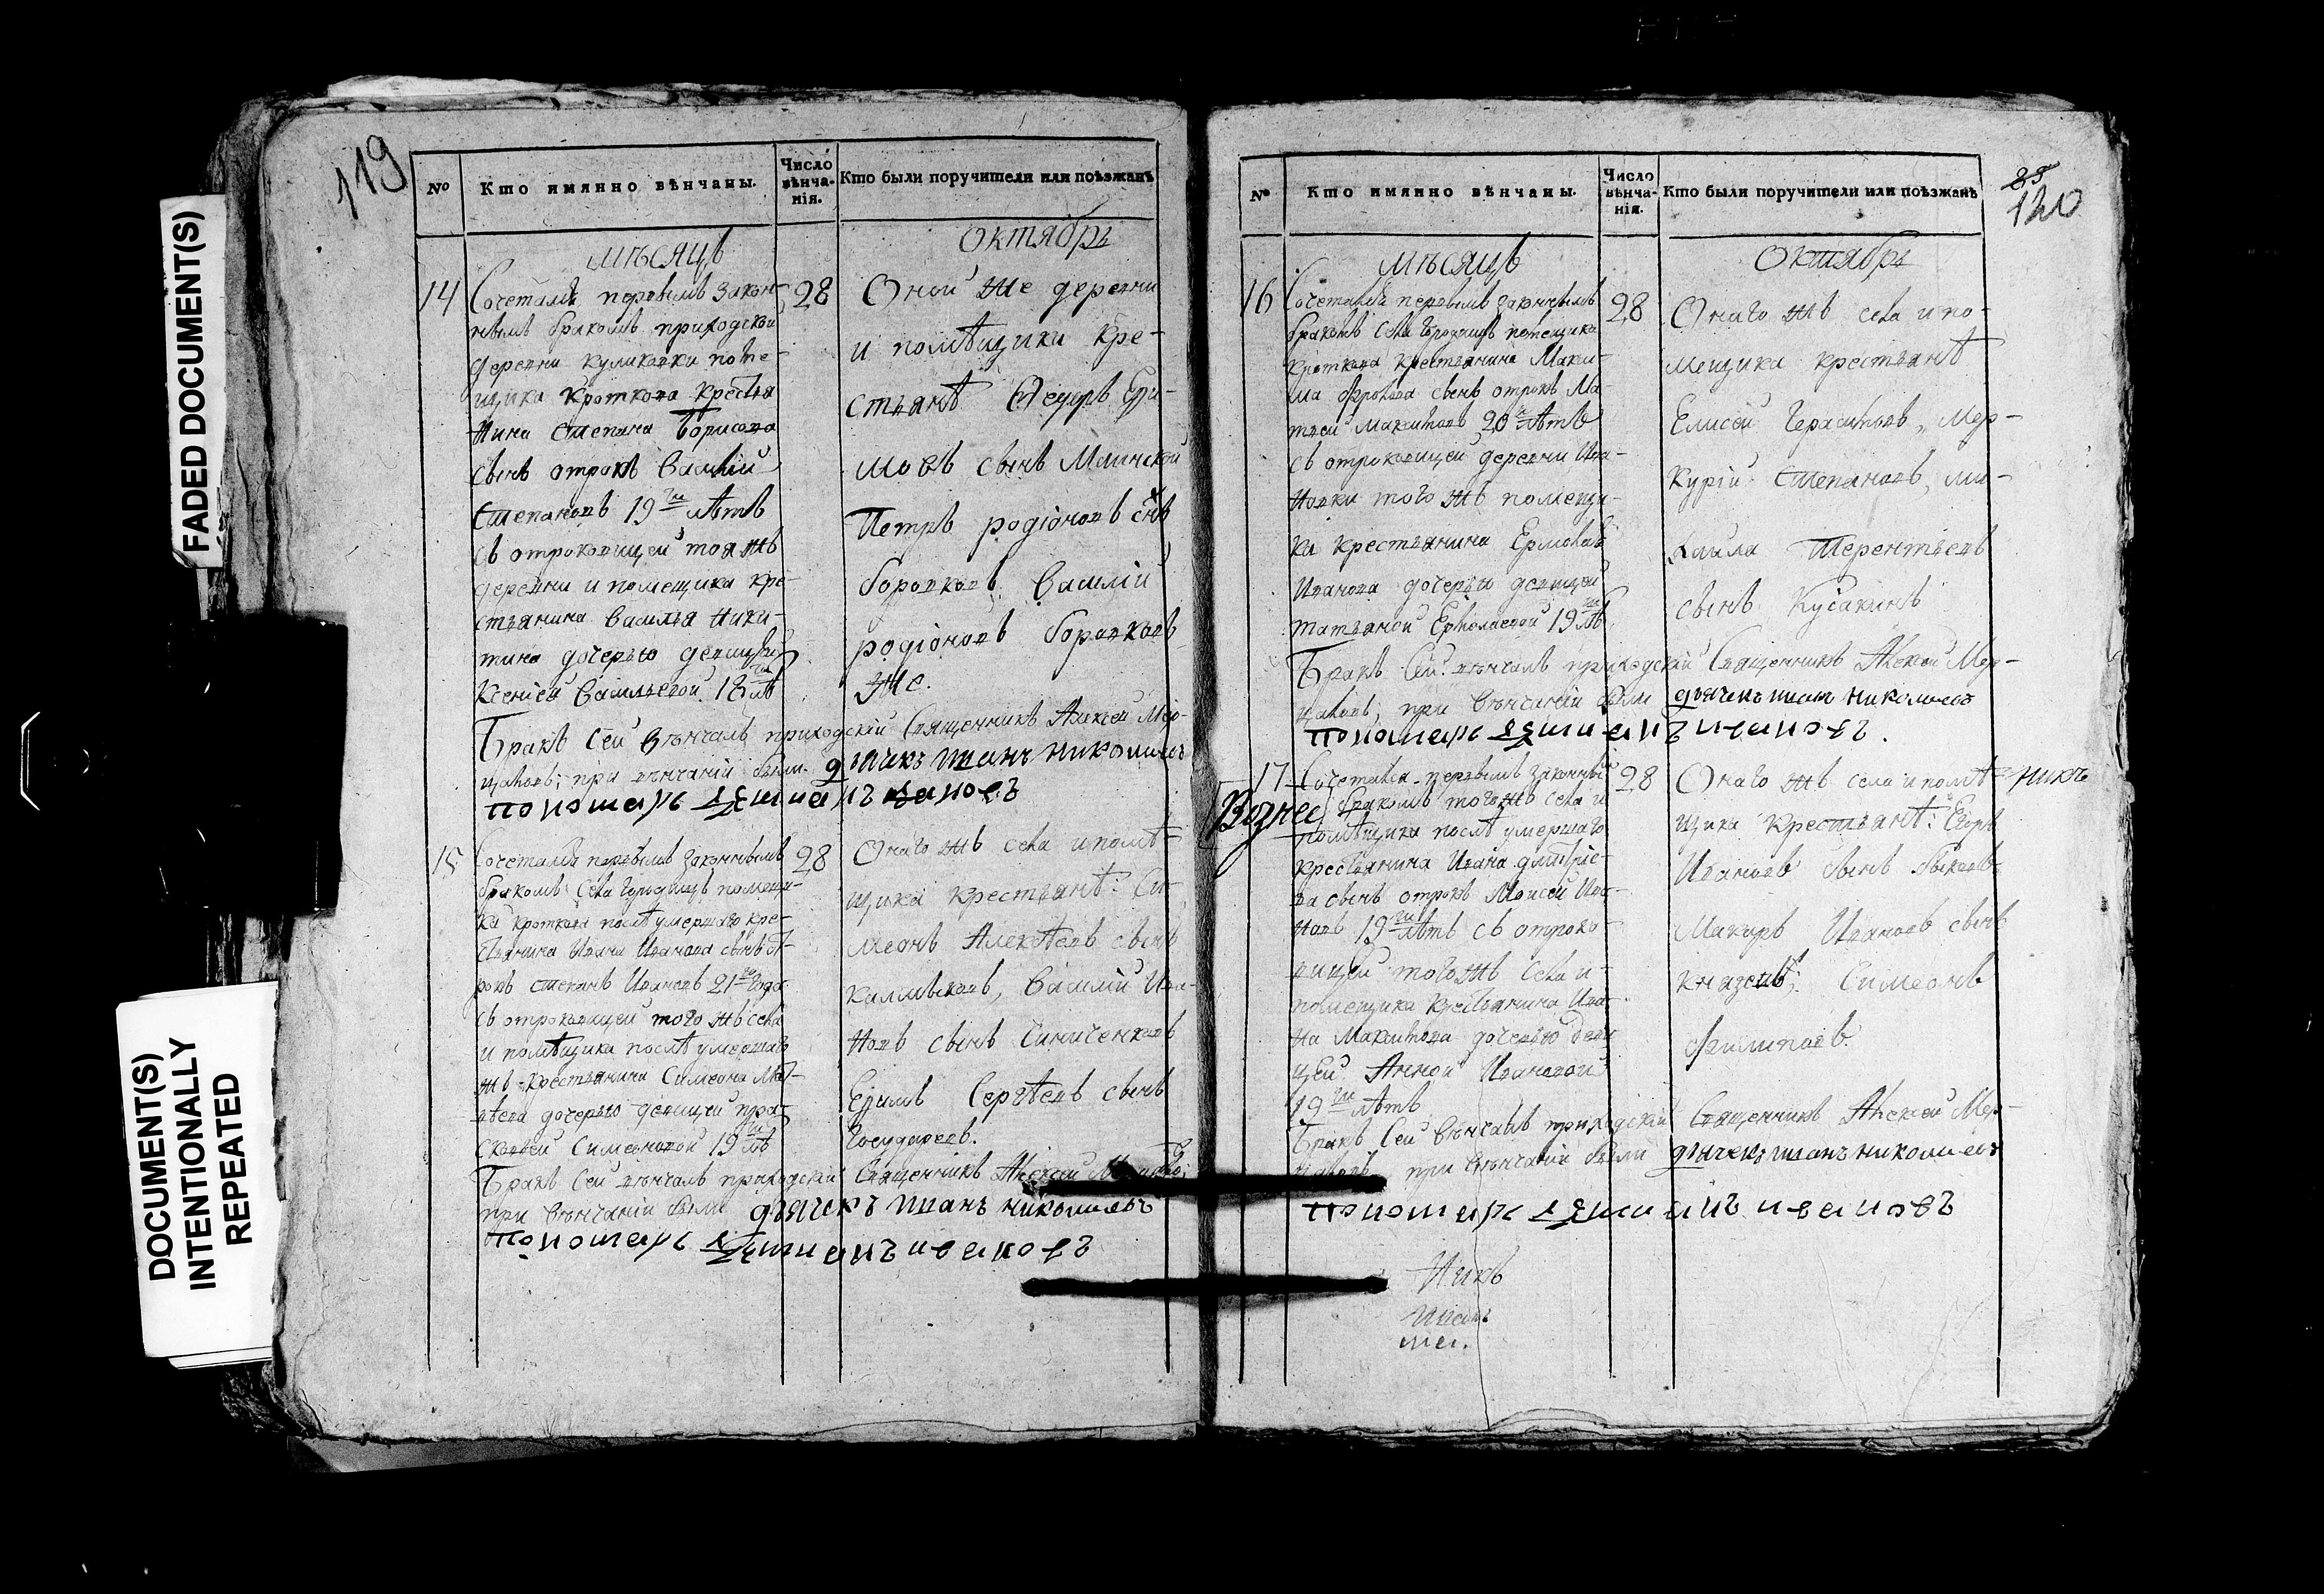 FADED DOCUMENT(S)
DOCUMENT(S)
INTENTIONALLY
REPEATED
119
№ Кто имянно вѣнчаны. Число вѣнча-нія. Кто были поручители или поѣзжанѣ
мѣсяцъ Октябрь
14 28
Сочетался первымъ закон-
нымъ бракомъ приходской
деревни куликовки поме-
щика Кроткова Крестья
нина Степана Борисова
сынъ отрокъ Василій
Степановъ 19ти лѣтъ
съ отроковицей тоя жъ
деревни и помещика кре-
стьянина Василья Ники-
тина дочерью девицей
Ксеніей Васильевой 18 лѣ
Оной же деревни
и помѣщики кре-
стьянѣ Федоръ Ефи-
мовъ сынъ
Петръ родіоновъ снъ
боровковъ Василій
родіоновъ боровковъ
же.
Бракъ Сей вѣнчалъ приходскій Священникъ Алексей Мер-
цаловъ; при вѣнчаніи были дьячекъ иванъ николаевъ
пономарь иванов
15 28
Сочетался первымъ законнымъ
бракомъ Села Городищъ помещи-
ка Кроткова послѣ умершаго кре-
стьянина Ивана Иванова сынъ от-
рокъ степанъ Ивановъ 21го года
съ отроковицей того жъ села
и помѣщика послѣ умершаго
жъ крестьянина Симеона Мат-
вѣева дочерью девицей пра-
сковьей Симеоновой 19 лѣ
Онаго жъ села и помѣ-
щика крестьянѣ: Си-
меонъ Алексѣевъ сынъ
калмыковъ, Василій Ива-
новъ сынъ Синиченковъ
Ефимъ Сергѣевъ сынъ
Государевъ.
Бракъ Сей вѣнчалъ приходскій Священникъ Алексей
при вѣнчаніи были дьячекъ иванъ николаевъ
пономарь ивановъ
85
120
№ Кто имянно вѣнчаны. Число вѣнча-нія. Кто были поручители или поѣзжанѣ
мѣсяцъ Октябрь
16 28
Сочетался первымъ законнымъ
бракомъ Села Городищъ помещика
Кроткова крестьянина Макси-
ма Фролова сынъ отрокъ Ма-
твей Максимовъ 20ти лѣтъ
съ отроковицей деревни Ива-
новки того жъ помещи-
ка крестьянина Ермолая
Иванова дочерью девицей
татьяной Ермолаевой 19 лѣ
Онаго жъ села и по-
мещика крестьянѣ
Елисей Герасимовъ, Мер-
курій Степановъ, ми-
хаила Терентьевъ
сынъ Кусакинъ
Бракъ Сей вѣнчалъ приходскій Священникъ Алексей Мер-
цаловъ; при вѣнчаніи были дьячекъ иванъ николаевъ
пономарь ивановъ.
17 28
Вознес
Сочетался первымъ законны
бракомъ того жъ села и
помѣщика послѣ умершаго
крестьянина Ивана дмитріе-
ва сынъ отрокъ Моисей Ива-
новъ 19ти лѣтъ съ отроко-
вицей того жъ Села и
помещика Крестьянина Ива-
на Максимова дочерью деви
цей Анной Ивановой
19ти лѣтъ
Онаго жъ села и помѣ-
щика Крестьянѣ: Егоръ
Ивановъ сынъ быковъ
Макаръ Ивановъ сынъ
князевъ; Симеонъ
Филиповъ.
никъ
Бракъ Сей вѣнчалъ приходскій Священникъ Алексей Мер-
цаловъ при вѣнчаніи были дьячекъ иванъ николаевъ
пономарь ивановъ